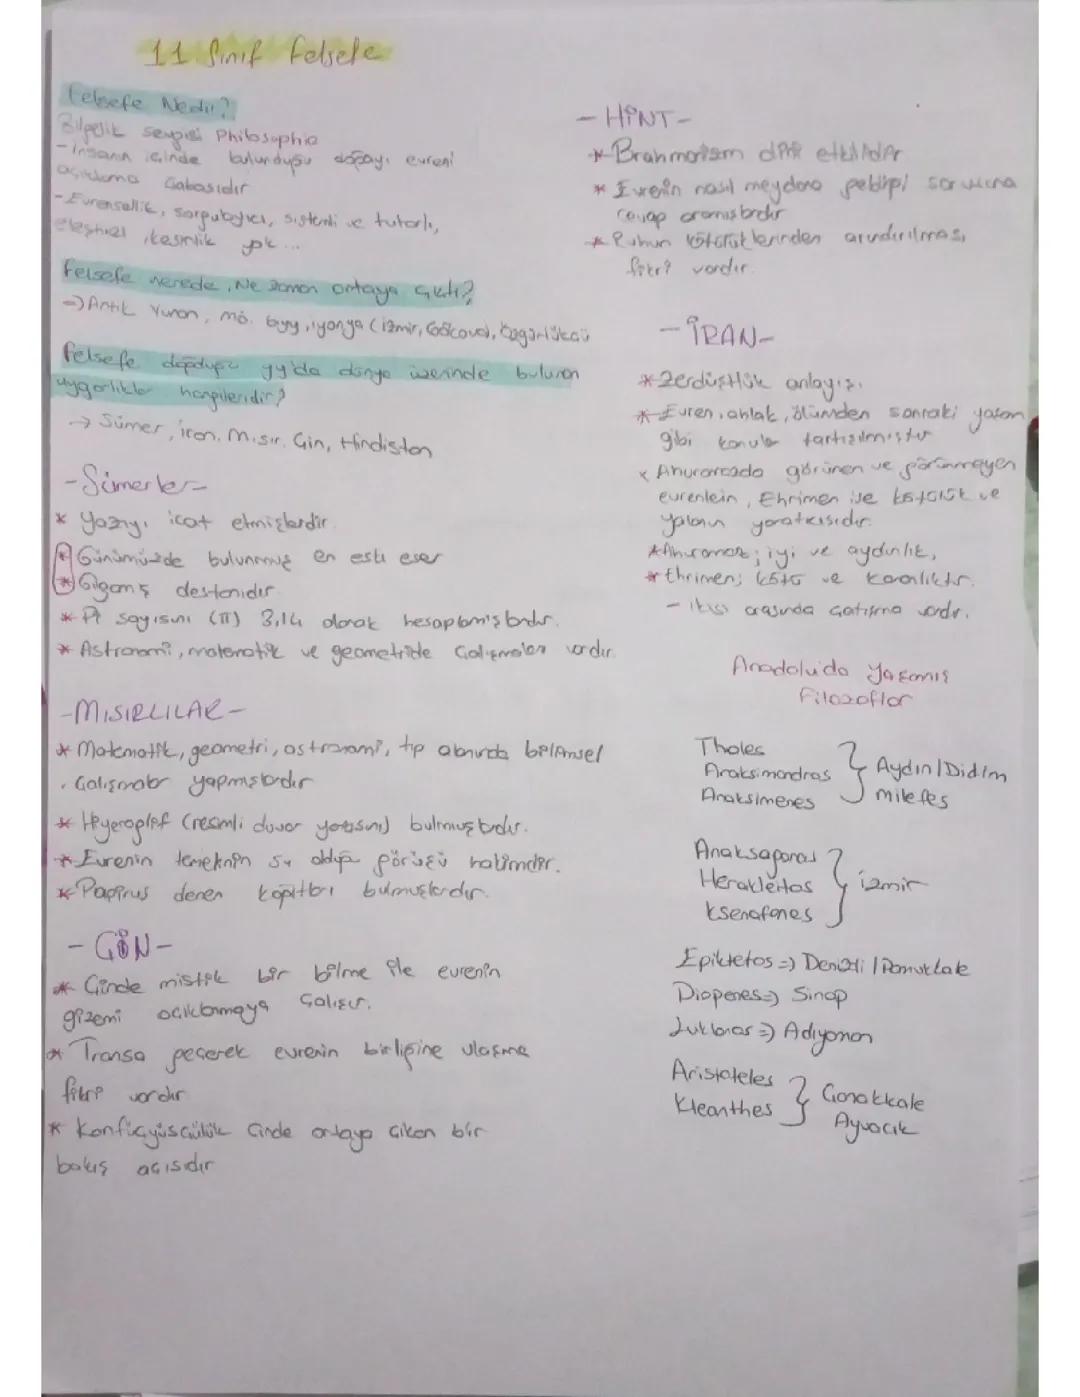 11. Sınıf Felsefe
Felsefe Nedir?
Bilgelik sevgisi Philosophia
- insanın içinde bulunduğu doğayı evreni
açıklama Çabasıdır
- Evrensellik, sorgulayıcı, sistemli ve tutarlı,
eleştirel, kesinlik yok...
Felsefe nerede, Ne zaman ortaya Çıktı?
→ Antik Yunan, mö. 6.yy, iyonya (izmir,
Felsefe doğduğu yy'da dünya üzerinde bulunan
uygarlıklar hangileridir?
→ Sümer, iran, Mısır, Çin, Hindistan
- Sümerler -
* Yazıyı icat etmişlerdir.
* Günümüzde bulunmuş en eski eser
* Gılgamış destanıdır
* Pi sayısını (π) 3,14 olarak hesaplamışlardır.
* Astronomi, matematik ve geometride Çalışmaları vardır.
- MISIRLILAR -
* Matematik, geometri, astronomi, tıp alanında bilimsel
Çalışmalar yapmışlardır
* Hiyeroglif (resimli duvar yazısını) bulmuşlardır.
* Evrenin temelinin su olduğu görüşü hakimdir.
* Papirus denen kağıtları bulmuşlardır.
- ÇİN -
* Çinde mistik bir bilme ile evrenin
gizemi açıklanmaya Çalışır.
* Transa geçerek evrenin birliğine ulaşma
fikri vardır
* Konfüçyüsçülük Çinde ortaya Çıkan bir
bakış açısıdır
- HİNT -
* Brahmanizm dini etkilidir
* Evrenin nasıl meydana geldiği sorusuna
cevap aramışlardır
* Ruhun kötülüklerinden arındırılması
fikri vardır.
- İRAN -
* Zerdüştlük anlayışı.
* Evren, ahlak, ölümden sonraki yaşam
gibi konular tartışılmıştır
* Ahuramazda görünen ve görünmeyen
evrenlerin, Ehrimen ise kötülük ve
yalanın yaratıcısıdır.
* Ahuramaz; iyi ve aydınlık,
* Ehrimen; kötü ve karanlıktır.
- ikisi arasında çatışma vardır.
Anadolu'da Yaşamış
Filozoflar
Thales
Anaksimandros
Anaksimenes
} Aydın / Didim
miletes
Anaksagoras
Herakleitos
Ksenofanes
} izmir
Epiktetos ⇒ Denizli / Pamukkale
Diogenes ⇒ Sinop
Lukianos ⇒ Adıyaman
Aristoteles
Kleanthes
} Çanakkale
Ayvacık